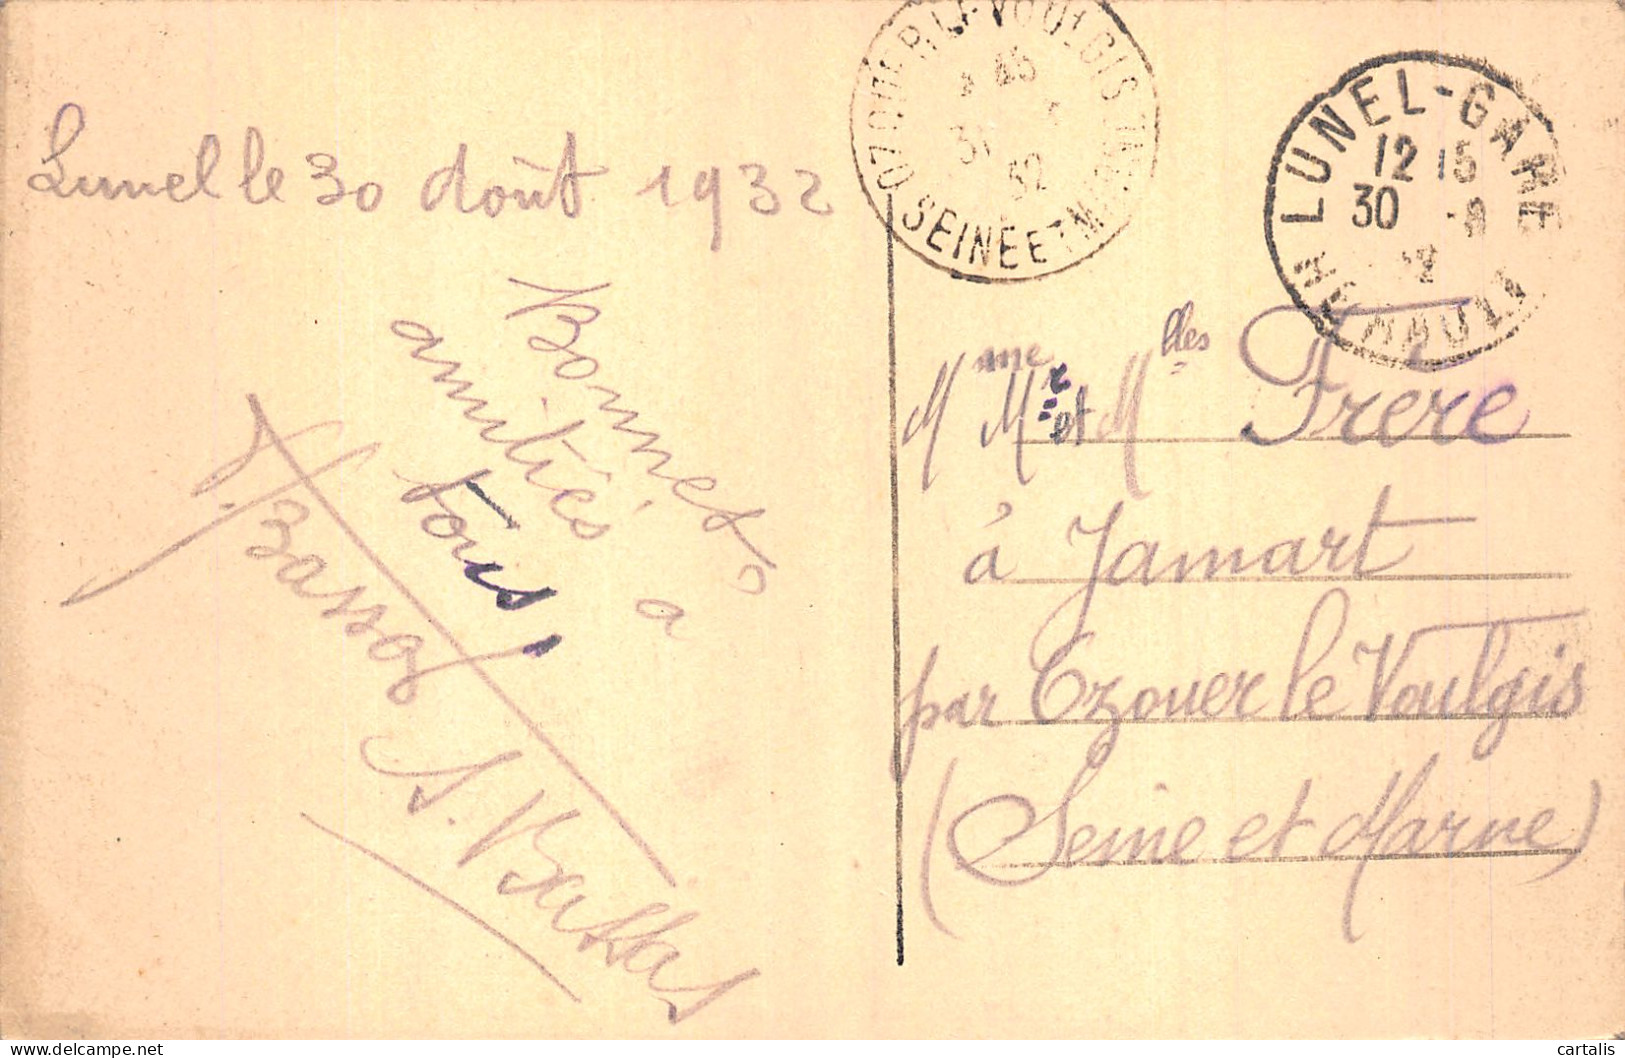 Lunel le 30 août 1932
Bonnes
amitiés à
tous,
J. Bassas
A. Bassas
OZOUER-LE-VOULGIS
31 32
SEINE ET M
LUNEL-GARE
12 15
30 -8
HERAULT
Mme Mr et Mlles Frere
à Jamart
par Ozouer le Voulgis
(Seine et Marne)
cartalis